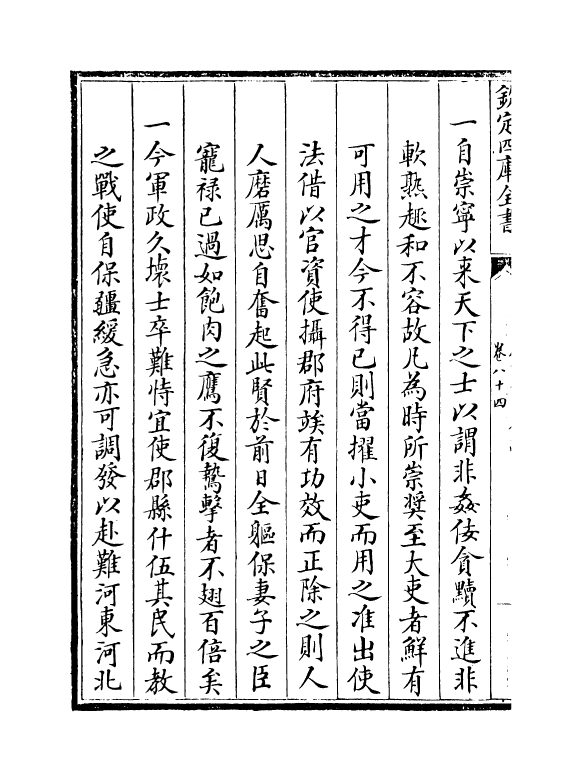 欽定四庫全書
卷八十四
一自崇寧以来天下之士以謂非姦佞貪黷不進非
軟熟趣和不容故凡為時所崇奬至大吏者鮮有
可用之才今不得已則當擢小吏而用之准出使
法借以官資使攝郡府竢有功效而正除之則人
人磨厲思自奮起此賢於前日全軀保妻子之臣
寵禄已過如飽肉之鷹不復鷙擊者不翅百倍矣
一今軍政久壞士卒難恃宜使郡縣什伍其民而教
之戰使自保疆緩急亦可調發以赴難河東河北